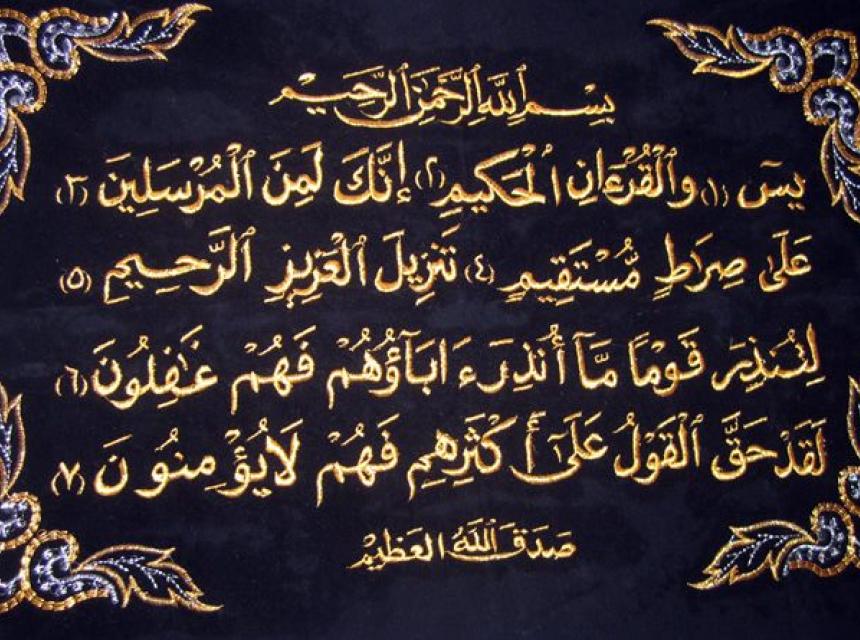 بِسْمِ ٱللَّهِ ٱلرَّحْمَٰنِ ٱلرَّحِيمِ
يسٓ (١) وَٱلْقُرْءَانِ ٱلْحَكِيمِ (٢) إِنَّكَ لَمِنَ ٱلْمُرْسَلِينَ (٣)
عَلَىٰ صِرَٰطٍ مُّسْتَقِيمٍ (٤) تَنزِيلَ ٱلْعَزِيزِ ٱلرَّحِيمِ (٥)
لِتُنذِرَ قَوْمًا مَّآ أُنذِرَ ءَابَآؤُهُمْ فَهُمْ غَٰفِلُونَ (٦)
لَقَدْ حَقَّ ٱلْقَوْلُ عَلَىٰٓ أَكْثَرِهِمْ فَهُمْ لَا يُؤْمِنُونَ (٧)
صَدَقَ اللَّهُ العَظِيمْ